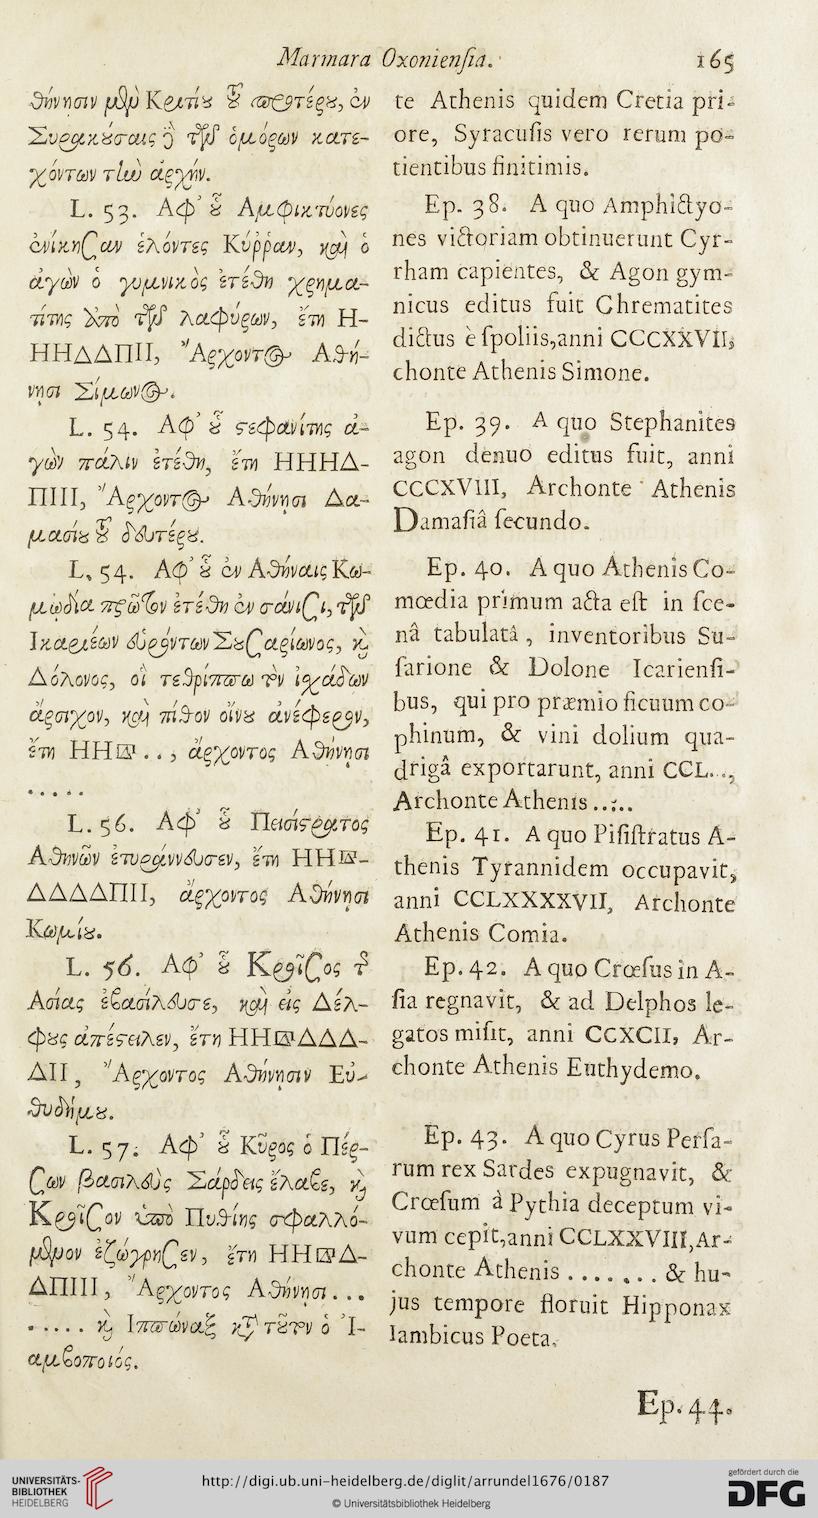 Marmara Oxoniensia. 165
Ἀθήνησιν μὲν Κριτίου τοῦ προτέρου, ἐν
Συρακούσαις δὲ τῶν ὁμόρων κατε-
χόντων τὴν ἀρχήν.
L. 53. Αφ' οὗ Αμφικτύονες
ἐνίκησαν ἑλόντες Κύρραν, καὶ ὁ
ἀγὼν ὁ γυμνικὸς ἐτέθη χρημα-
τίτης ἀπὸ τῶν λαφύρων, ἔτη Η-
ΗΗΔΔΠΙΙ, Ἄρχοντος Αθή-
νησι Σίμωνος.
L. 54. Αφ' οὗ στεφανίτης ἀ-
γὼν πάλιν ἐτέθη, ἔτη ΗΗΗΔ-
ΠΙΙΙ, Ἄρχοντος Αθήνησι Δα-
μασίου τοῦ δευτέρου.
L. 54. Αφ' οὗ ἐν Αθήναις Κω-
μῳδία πρῶτον ἐτέθη ἐν σάνισι, τῶν
Ικαριέων εὑρόντων Σουσαρίωνος, καὶ
Δόλονος, οἳ τεθρίππῳ τὸν ἰχάδων
ἄρσιχον, καὶ πίθον οἴνου ἀνέφερον,
ἔτη ΗΗ𐅄 . . , ἄρχοντος Αθήνησι
. . . . .
L. 56. Αφ' οὗ Πεισίστρατος
Αθηνῶν ἐτυράννευσεν, ἔτη ΗΗ𐅄-
ΔΔΔΔΠΙΙ, ἄρχοντος Αθήνησι
Κωμίου.
L. 56. Αφ' οὗ Κροῖσος τῆς
Ασίας ἐβασίλευσε, καὶ εἰς Δέλ-
φους ἀπέστειλεν, ἔτη ΗΗ𐅄ΔΔΔ-
ΔΙΙ, Ἄρχοντος Αθήνησιν Εὐ-
θυδήμου.
L. 57. Αφ' οὗ Κῦρος ὁ Πέρ-
σων βασιλεὺς Σάρδεις ἔλαβε, καὶ
Κροῖσον ὑπὸ Πυθίης σφαλλό-
μενον ἐζώγρησεν, ἔτη ΗΗ𐅄Δ-
ΔΠΙΙΙ, Ἄρχοντος Αθήνησι . . .
. . . . . καὶ Ιππώναξ κατὰ τοῦτον ὁ Ἰ-
αμβοποιός.
te Athenis quidem Cretia pri-
ore, Syracusis vero rerum po-
tientibus finitimis.
Ep. 38. A quo Amphictyo-
nes victoriam obtinuerunt Cyr-
rham capientes, & Agon gym-
nicus editus fuit Chrematites
dictus è spoliis, anni CCCXXVII,
chonte Athenis Simone.
Ep. 39. A quo Stephanites
agon denuo editus fuit, anni
CCCXVIII, Archonte Athenis
Damasiâ secundo.
Ep. 40. A quo Athenis Co-
mœdia primum acta est in sce-
nâ tabulatâ, inventoribus Su-
sarione & Dolone Icariensi-
bus, qui pro præmio ficuum co-
phinum, & vini dolium qua-
drigâ exportarunt, anni CCL...,
Archonte Athenis .....
Ep. 41. A quo Pisistratus A-
thenis Tyrannidem occupavit,
anni CCLXXXXVII, Archonte
Athenis Comia.
Ep. 42. A quo Crœsus in A-
sia regnavit, & ad Delphos le-
gatos misit, anni CCXCII, Ar-
chonte Athenis Euthydemo.
Ep. 43. A quo Cyrus Persa-
rum rex Sardes expugnavit, &
Crœsum à Pythia deceptum vi-
vum cepit, anni CCLXXVIII, Ar-
chonte Athenis ....... & hu-
jus tempore floruit Hipponax
Iambicus Poeta.
Ep. 44.
UNIVERSITÄTS-
BIBLIOTHEK
HEIDELBERG
http://digi.ub.uni-heidelberg.de/diglit/arrundel1676/0187
© Universitätsbibliothek Heidelberg
gefördert durch die
DFG